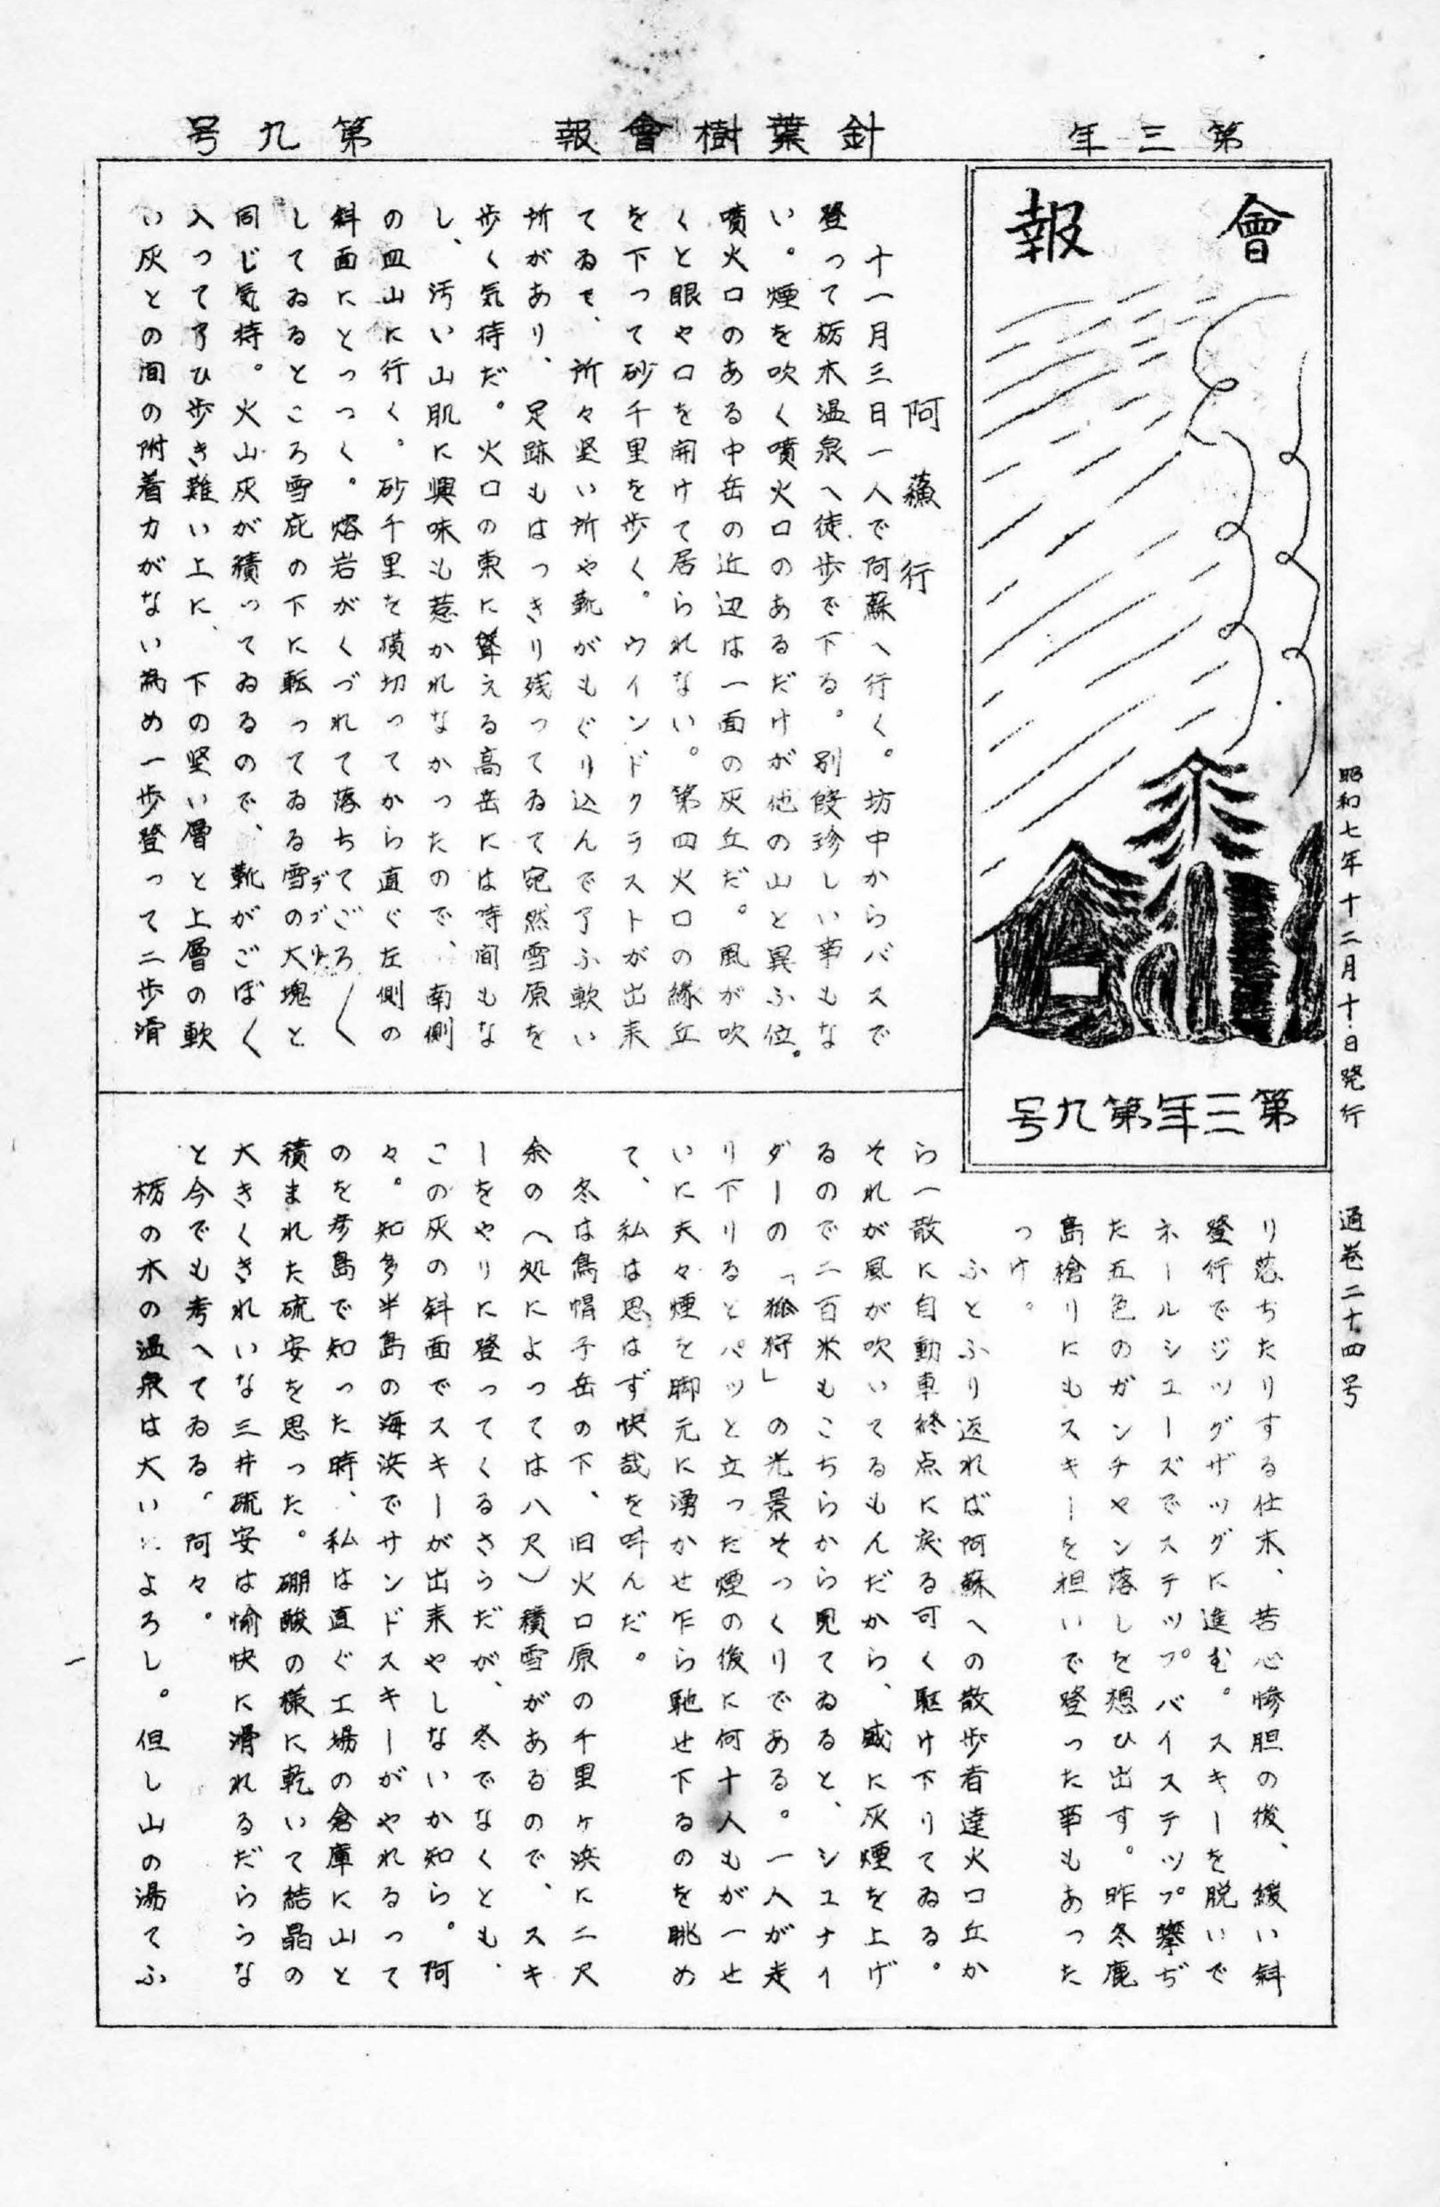 第三年 針葉樹會報 第九号
會報
第三年第九号
昭和七年十二月十日発行 通巻二十四号
阿蘇行
十一月三日一人で阿蘇へ行く。坊中からバスで
登って栃木温泉へ徒歩で下る。別段珍しい事もな
い。煙を吹く噴火口のあるだけが他の山と異ふ位。
噴火口のある中岳の近辺は一面の灰丘だ。風が吹
くと眼や口を開けて居られない。第四火口の縁丘
を下って砂千里を歩く。ウインドクラストが出来
てゐて、所々堅い所や靴がもぐり込んで了ふ軟い
所があり、足跡もはっきり残ってゐて宛然雪原を
歩く気持だ。火口の東に聳える高岳には時間もな
し、汚い山肌に興味も惹かれなかったので、南側
の皿山に行く。砂千里を横切ってから直ぐ左側の
斜面にとっつく。熔岩がくづれて落ちてごろ〱
してゐるところ雪庇の下に転ってゐる雪の大塊と
デブリ
同じ気持。火山灰が積ってゐるので、靴がごぼ〱
入って了ひ歩き難い上に、下の堅い層と上層の軟
い灰との間の附着力がない為め一歩登って二歩滑
り落ちたりする仕末、苦心惨胆の後、緩い斜
登行でジッグザッグに進む。スキーを脱いで
ネールシューズでステップバイステップ攀ぢ
た五色のガンチャン落しを想ひ出す。昨冬鹿
島槍りにもスキーを担いで登った事もあった
っけ。
ふとふり返れば阿蘇への散歩者達火口丘か
ら一散に自動車終点に戻る可く駆け下りてゐる。
それが風が吹いてるもんだから、盛に灰煙を上げ
るので二百米もこちらから見てゐると、シュナイ
ダーの「狐狩」の光景そっくりである。一人が走
り下りるとパッと立った煙の後に何十人もが一せ
いに夫々煙を脚元に湧かせ乍ら馳せ下るのを眺め
て、私は思はず快哉を叫んだ。
冬は烏帽子岳の下、旧火口原の千里ヶ浜に二尺
余の（処によっては八尺）積雪があるので、スキ
ーをやりに登ってくるさうだが、冬でなくとも、
この灰の斜面でスキーが出来やしないか知ら。阿
々。知多半島の海浜でサンドスキーがやれるって
のを彦島で知った時、私は直ぐ工場の倉庫に山と
積まれた硫安を思った。硼酸の様に乾いて結晶の
大きくきれいな三井硫安は愉快に滑れるだらうな
と今でも考へてゐる。阿々。
栃の木の温泉は大いによろし。但し山の湯てふ
一